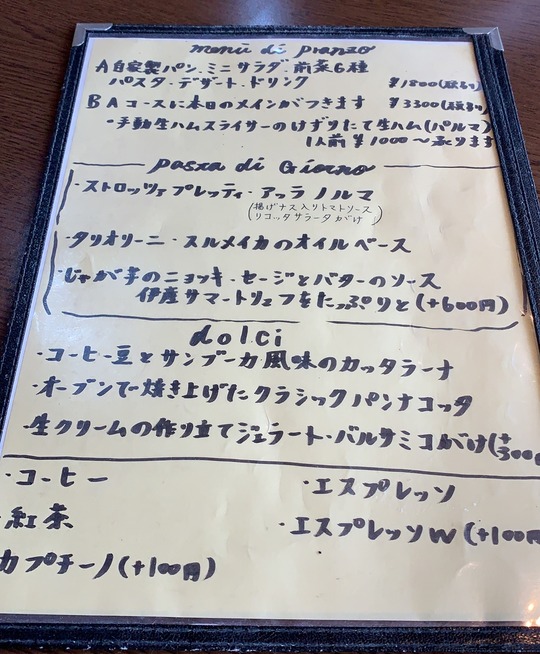 menù di pranzo
A 自家製パン、ミニサラダ、前菜6種
パスタ・デザート・ドリンク ¥1800(税込)
B Aコースに本日のメインがつきます ¥3300(税込)
・手動生ハムスライサーのけずりたて生ハム(パルマ)
1人前¥1000〜承ります
pasta di Giorno
・ストロッツァプレッティ・アッラ ノルマ
(揚げナス入りトマトソース
リコッタサラータがけ)
・タリオリーニ・スルメイカのオイルベース
・じゃが芋のニョッキ・セージとバターのソース
伊産サマートリュフをたっぷりと(+600円)
dolci
・コーヒー豆とサンブーカ風味のカッタラーナ
・オーブンで焼き上げたクラシックパンナコッタ
・生クリームの作り立てジェラート・バルサミコがけ(+300
・コーヒー
・エスプレッソ
・紅茶
・エスプレッソW(+100円
カプチーノ(+100円)